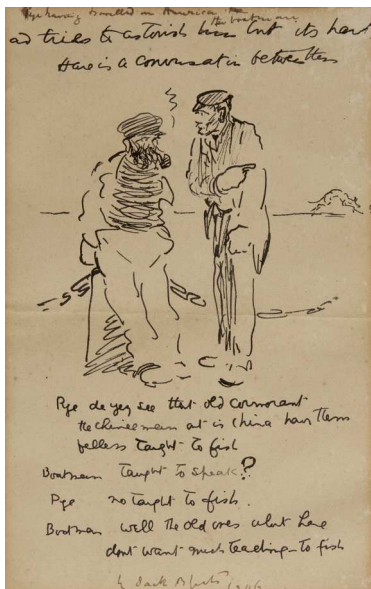 Pye having travelled in America the
the boatman
ad tries to astonish him but its hard
Here is a conversation between them
Pye do yey see that old cormorant
the chinee men at is china have them
fellers taught to fish
Boatman taught to speak?
Pye no taught to fish.
Boatman well the old ones about here
dont want much teaching to fish
by Jack B Yeats